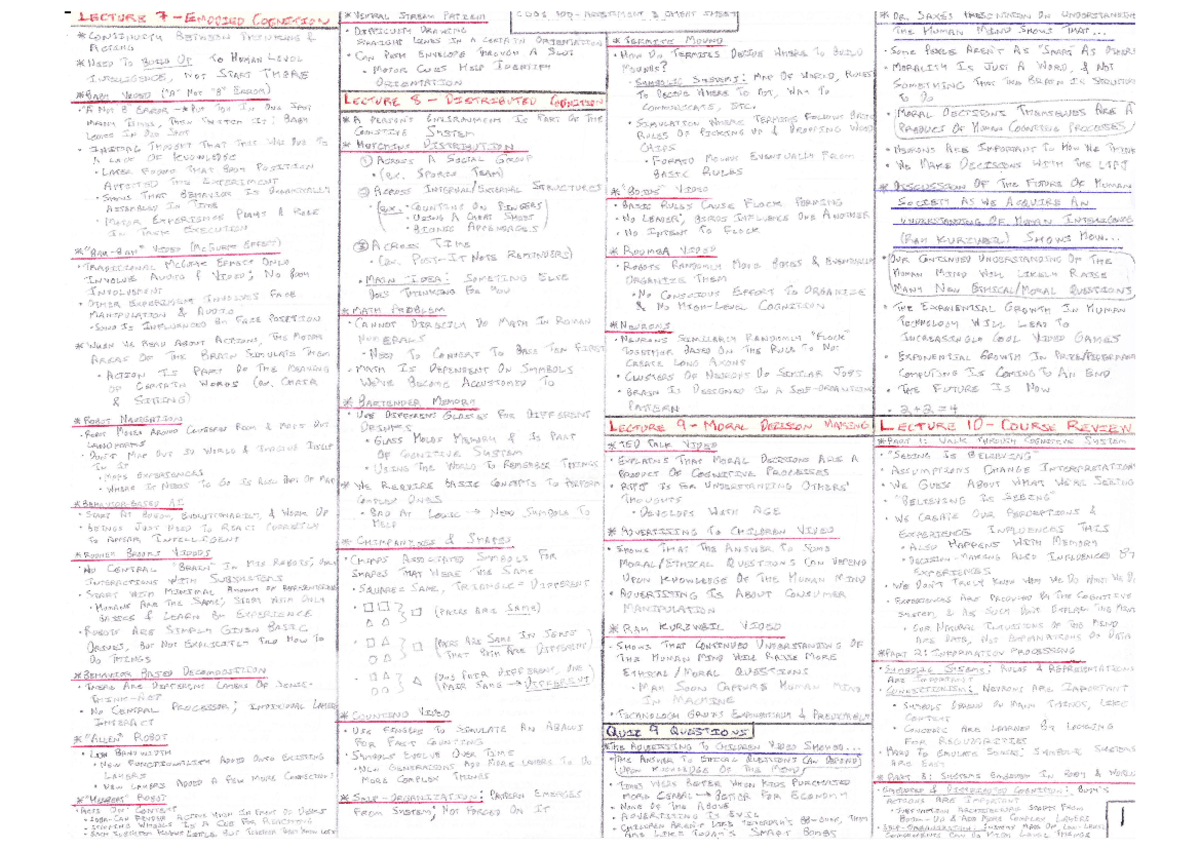 LECTURE 7 - EMBODIED COGNITION
* CONTINUITY BETWEEN THINKING &
ACTING
* NEED TO BUILD UP TO HUMAN LEVEL
INTELLIGENCE, NOT START THERE
* BABY VIDEO ("A" NOT "B" ERROR)
LEAVES IN OLD SPOT
• INITIAL THOUGHT THAT THIS WAS DUE TO
A LACK OF KNOWLEDGE
• LATER FOUND THAT BODY POSITION
AFFECTED THE EXPERIMENT
• SHOWS THAT BEHAVIOR IS DYNAMICALLY
ASSEMBLED IN TIME
• MOTOR EXPERIENCE PLAYS A ROLE
IN TASK EXECUTION
* "BAH-BAH" VIDEO (MCGURK EFFECT)
• TRADITIONAL MCGURK EFFECT ONLY
INVOLVE AUDIO & VIDEO; NO BODY
INVOLVEMENT
• OTHER EXPERIMENT INVOLVES FACE
MANIPULATION & AUDIO
• SOUND IS INFLUENCED BY FACE POSITION
* WHEN WE READ ABOUT ACTIONS, THE MOTOR
AREAS OF THE BRAIN SIMULATE THEM
• ACTION IS PART OF THE MEANING
OF CERTAIN WORDS (EX. CHAIR
& SITTING)
* ROBOT NAVIGATION
• ROBOT MOVES AROUND CONFINED ROOM & MAPS OUT
LANDMARKS
• DON'T MAP OUT 3D WORLD & IMAGINE ITSELF
IN IT
• MAPS EXPERIENCES
• WHERE IT NEEDS TO GO IS ALSO PART OF MAP
* BEHAVIOR-BASED AI
• START AT BOTTOM, EVOLUTIONARILY, & WORK UP
• BEINGS JUST NEED TO REACT CORRECTLY
TO APPEAR INTELLIGENT
* RODNEY BROOKS VIDEOS
• NO CENTRAL "BRAIN" IN HIS ROBOTS, ONLY
INTERACTIONS WITH SUBSYSTEMS
• START WITH MINIMAL AMOUNT OF REPRESENTATION
• HUMANS ARE THE SAME; START WITH ONLY
BASICS & LEARN BY EXPERIENCE
• ROBOTS ARE SIMPLY GIVEN BASIC
DRIVES, BUT NOT EXPLICITLY TOLD HOW TO
DO THINGS
* BEHAVIOR BASED DECOMPOSITION
• THERE ARE DIFFERENT LAYERS OF SENSE-
THINK-ACT
• NO CENTRAL PROCESSOR; INDIVIDUAL LAYERS
INTERACT
* "ALLEN" ROBOT
• LOW BANDWIDTH
• NEW FUNCTIONALITY ADDED ONTO EXISTING
LAYERS
• NEW LAYERS ADDED A FEW MORE CONNECTIONS
* "HERBERT" ROBOT
* VENTRAL STREAM PATIENT
• DIFFICULTY DRAWING
STRAIGHT LINES IN A CERTAIN ORIENTATION
• CAN PUSH ENVELOPE THROUGH A SLOT
• MOTOR CUES HELP IDENTIFY
ORIENTATION
LECTURE 8 - DISTRIBUTED COGNITION
* A PERSON'S ENVIRONMENT IS PART OF THE
COGNITIVE SYSTEM
* HUTCHINS DISTRIBUTION
① ACROSS A SOCIAL GROUP
• (EX. SPORTS TEAM)
② ACROSS INTERNAL/EXTERNAL STRUCTURES
• (EX. • COUNTING ON FINGERS
• USING A CHEAT SHEET
• BIONIC APPENDAGES)
③ ACROSS TIME
(EX. POST-IT NOTE REMINDERS)
• MAIN IDEA: SOMETHING ELSE
DOES THINKING FOR YOU
* MATH PROBLEM
• CANNOT DIRECTLY DO MATH IN ROMAN
NUMERALS
• NEED TO CONVERT TO BASE TEN FIRST
• MATH IS DEPENDENT ON SYMBOLS
WE'VE BECOME ACCUSTOMED TO
* BARTENDER MEMORY
• USE DIFFERENT GLASSES FOR DIFFERENT
DRINKS
• GLASS HOLDS MEMORY & IS PART
OF COGNITIVE SYSTEM
• USING THE WORLD TO REMEMBER THINGS
* WE REQUIRE BASIC CONCEPTS TO PERFORM
COMPLEX ONES
• BAD AT LOGIC → NEED SYMBOLS TO
HELP
* CHIMPANZEES & SHAPES
• CHIMPS ASSOCIATED SYMBOLS FOR
SHAPES THAT WERE THE SAME
• SQUARE = SAME, TRIANGLE = DIFFERENT
(PAIRS ARE SAME)
(PAIRS ARE SAME IN SENSE
THAT BOTH ARE DIFFERENT)
(ONE PAIR DIFFERENT, ONE
PAIR SAME → DIFFERENT)
* COUNTING VIDEO
• USE FINGERS TO SIMULATE AN ABACUS
FOR FAST COUNTING
• SYMBOLS EVOLVE OVER TIME
• NEW GENERATIONS ADD MORE LAYERS TO DO
MORE COMPLEX THINGS
* SELF-ORGANIZATION: PATTERN EMERGES
FROM SYSTEM; NOT FORCED ON IT
COGS 100 - ASSESSMENT 3 CHEAT SHEET
* TERMITE MOUND
• HOW DO TERMITES DECIDE WHERE TO BUILD
MOUNDS?
• SYMBOLIC SYSTEMS: MAP OF WORLD, RULES
TO DECIDE WHERE TO PUT, WAY TO
COMMUNICATE, ETC.
• SIMULATION WHERE TERMITES FOLLOWED BASIC
RULES OF PICKING UP & DROPPING WOOD
CHIPS
• FORMED MOUNDS EVENTUALLY FROM
BASIC RULES
* "BOIDS" VIDEO
• BASIC RULES CAUSE FLOCK FORMING
• NO LEADER, BIRDS INFLUENCE ONE ANOTHER
• NO INTENT TO FLOCK
* ROOMBA VIDEO
• ROBOTS RANDOMLY MOVE BOXES & EVENTUALLY
ORGANIZE THEM
• NO CONSCIOUS EFFORT TO ORGANIZE
& NO HIGH-LEVEL COGNITION
* NEURONS
• NEURONS SIMILARLY RANDOMLY "FLOCK"
TOGETHER BASED ON THE RULE TO NOT
CREATE LONG AXONS
• CLUSTERS OF NEURONS DO SIMILAR JOBS
• BRAIN IS DESIGNED IN A SELF-ORGANIZING
PATTERN
LECTURE 9 - MORAL DECISION MAKING
* TED TALK VIDEO
• EXPLAINS THAT MORAL DECISIONS ARE A
PRODUCT OF COGNITIVE PROCESSES
• RTPJ IS FOR UNDERSTANDING OTHERS'
THOUGHTS
• DEVELOPS WITH AGE
* ADVERTISING TO CHILDREN VIDEO
• SHOWS THAT THE ANSWER TO SOME
MORAL/ETHICAL QUESTIONS CAN DEPEND
UPON KNOWLEDGE OF THE HUMAN MIND
• ADVERTISING IS ABOUT CONSUMER
MANIPULATION
* RAY KURZWEIL VIDEO
• SHOWS THAT CONTINUED UNDERSTANDING OF
THE HUMAN MIND WILL RAISE MORE
ETHICAL/MORAL QUESTIONS
• MAY SOON CAPTURE HUMAN MIND
IN MACHINE
• TECHNOLOGY GROWS EXPONENTIALLY & PREDICTABLY
QUIZ 9 QUESTIONS
* THE ADVERTISING TO CHILDREN VIDEO SHOWED...
• THE ANSWER TO ETHICAL QUESTIONS CAN DEPEND
UPON KNOWLEDGE OF THE MIND
• NONE OF THE ABOVE
• ADVERTISING IS EVIL
ARE LIKE TODAY'S SMART BOMBS
* DR. SAXE'S PRESENTATION ON UNDERSTANDING
THE HUMAN MIND SHOWS THAT...
• SOME PEOPLE AREN'T AS "SMART" AS OTHERS
• MORALITY IS JUST A WORD, & NOT
SOMETHING THAT THE BRAIN IS STRUCTURED
TO DO
• MORAL DECISIONS THEMSELVES ARE A
PRODUCT OF HUMAN COGNITIVE PROCESSES
• NEURONS ARE IMPORTANT TO HOW WE THINK
• WE MAKE DECISIONS WITH THE LTPJ
* DISCUSSION OF THE FUTURE OF HUMAN
SOCIETY AS WE ACQUIRE AN
UNDERSTANDING OF HUMAN INTELLIGENCE
(RAY KURZWEIL) SHOWS HOW...
• OUR CONTINUED UNDERSTANDING OF THE
HUMAN MIND WILL LIKELY RAISE
MANY NEW ETHICAL/MORAL QUESTIONS
• THE EXPONENTIAL GROWTH IN HUMAN
TECHNOLOGY WILL LEAD TO
INCREASINGLY COOL VIDEO GAMES
• EXPONENTIAL GROWTH IN PRICE/PERFORMANCE
COMPUTING IS COMING TO AN END
• THE FUTURE IS NOW
• 2+2=4
LECTURE 10 - COURSE REVIEW
* PART 1: WALK THROUGH COGNITIVE SYSTEM
• "SEEING IS BELIEVING"
• ASSUMPTIONS CHANGE INTERPRETATION
• WE GUESS ABOUT WHAT WE'RE SEEING
• "BELIEVING IS SEEING"
• WE CREATE OUR PERCEPTIONS &
EXPERIENCE INFLUENCES THIS
• ALSO HAPPENS WITH MEMORY
• DECISION-MAKING ALSO INFLUENCED BY
EXPERIENCES
• WE DON'T TRULY KNOW WHY WE DO WHAT WE DO
• EXPERIENCES ARE PRODUCED BY THE COGNITIVE
SYSTEM, & AS SUCH DON'T EXPLAIN THE MIND
• OUR NATURAL INTUITIONS OF THE MIND
ARE DATA, NOT EXPLANATIONS OF DATA
* PART 2: INFORMATION PROCESSING
• SYMBOLIC SYSTEMS: RULES & REPRESENTATIONS
ARE IMPORTANT
• CONNECTIONISM: NEURONS ARE IMPORTANT
• SYMBOLS DEPEND ON MANY THINGS, LIKE
CONTEXT
• CONCEPTS ARE LEARNED BY LOOKING
FOR REGULARITIES
ARE EASY
* PART 3: SYSTEMS EMBEDDED IN BODY & WORLD
• EMBODIED & DISTRIBUTED COGNITION: BODY'S
ACTIONS ARE IMPORTANT
• SUBSUMPTION ARCHITECTURE STARTS FROM
BOTTOM-UP & ADDS MORE COMPLEX LAYERS
1